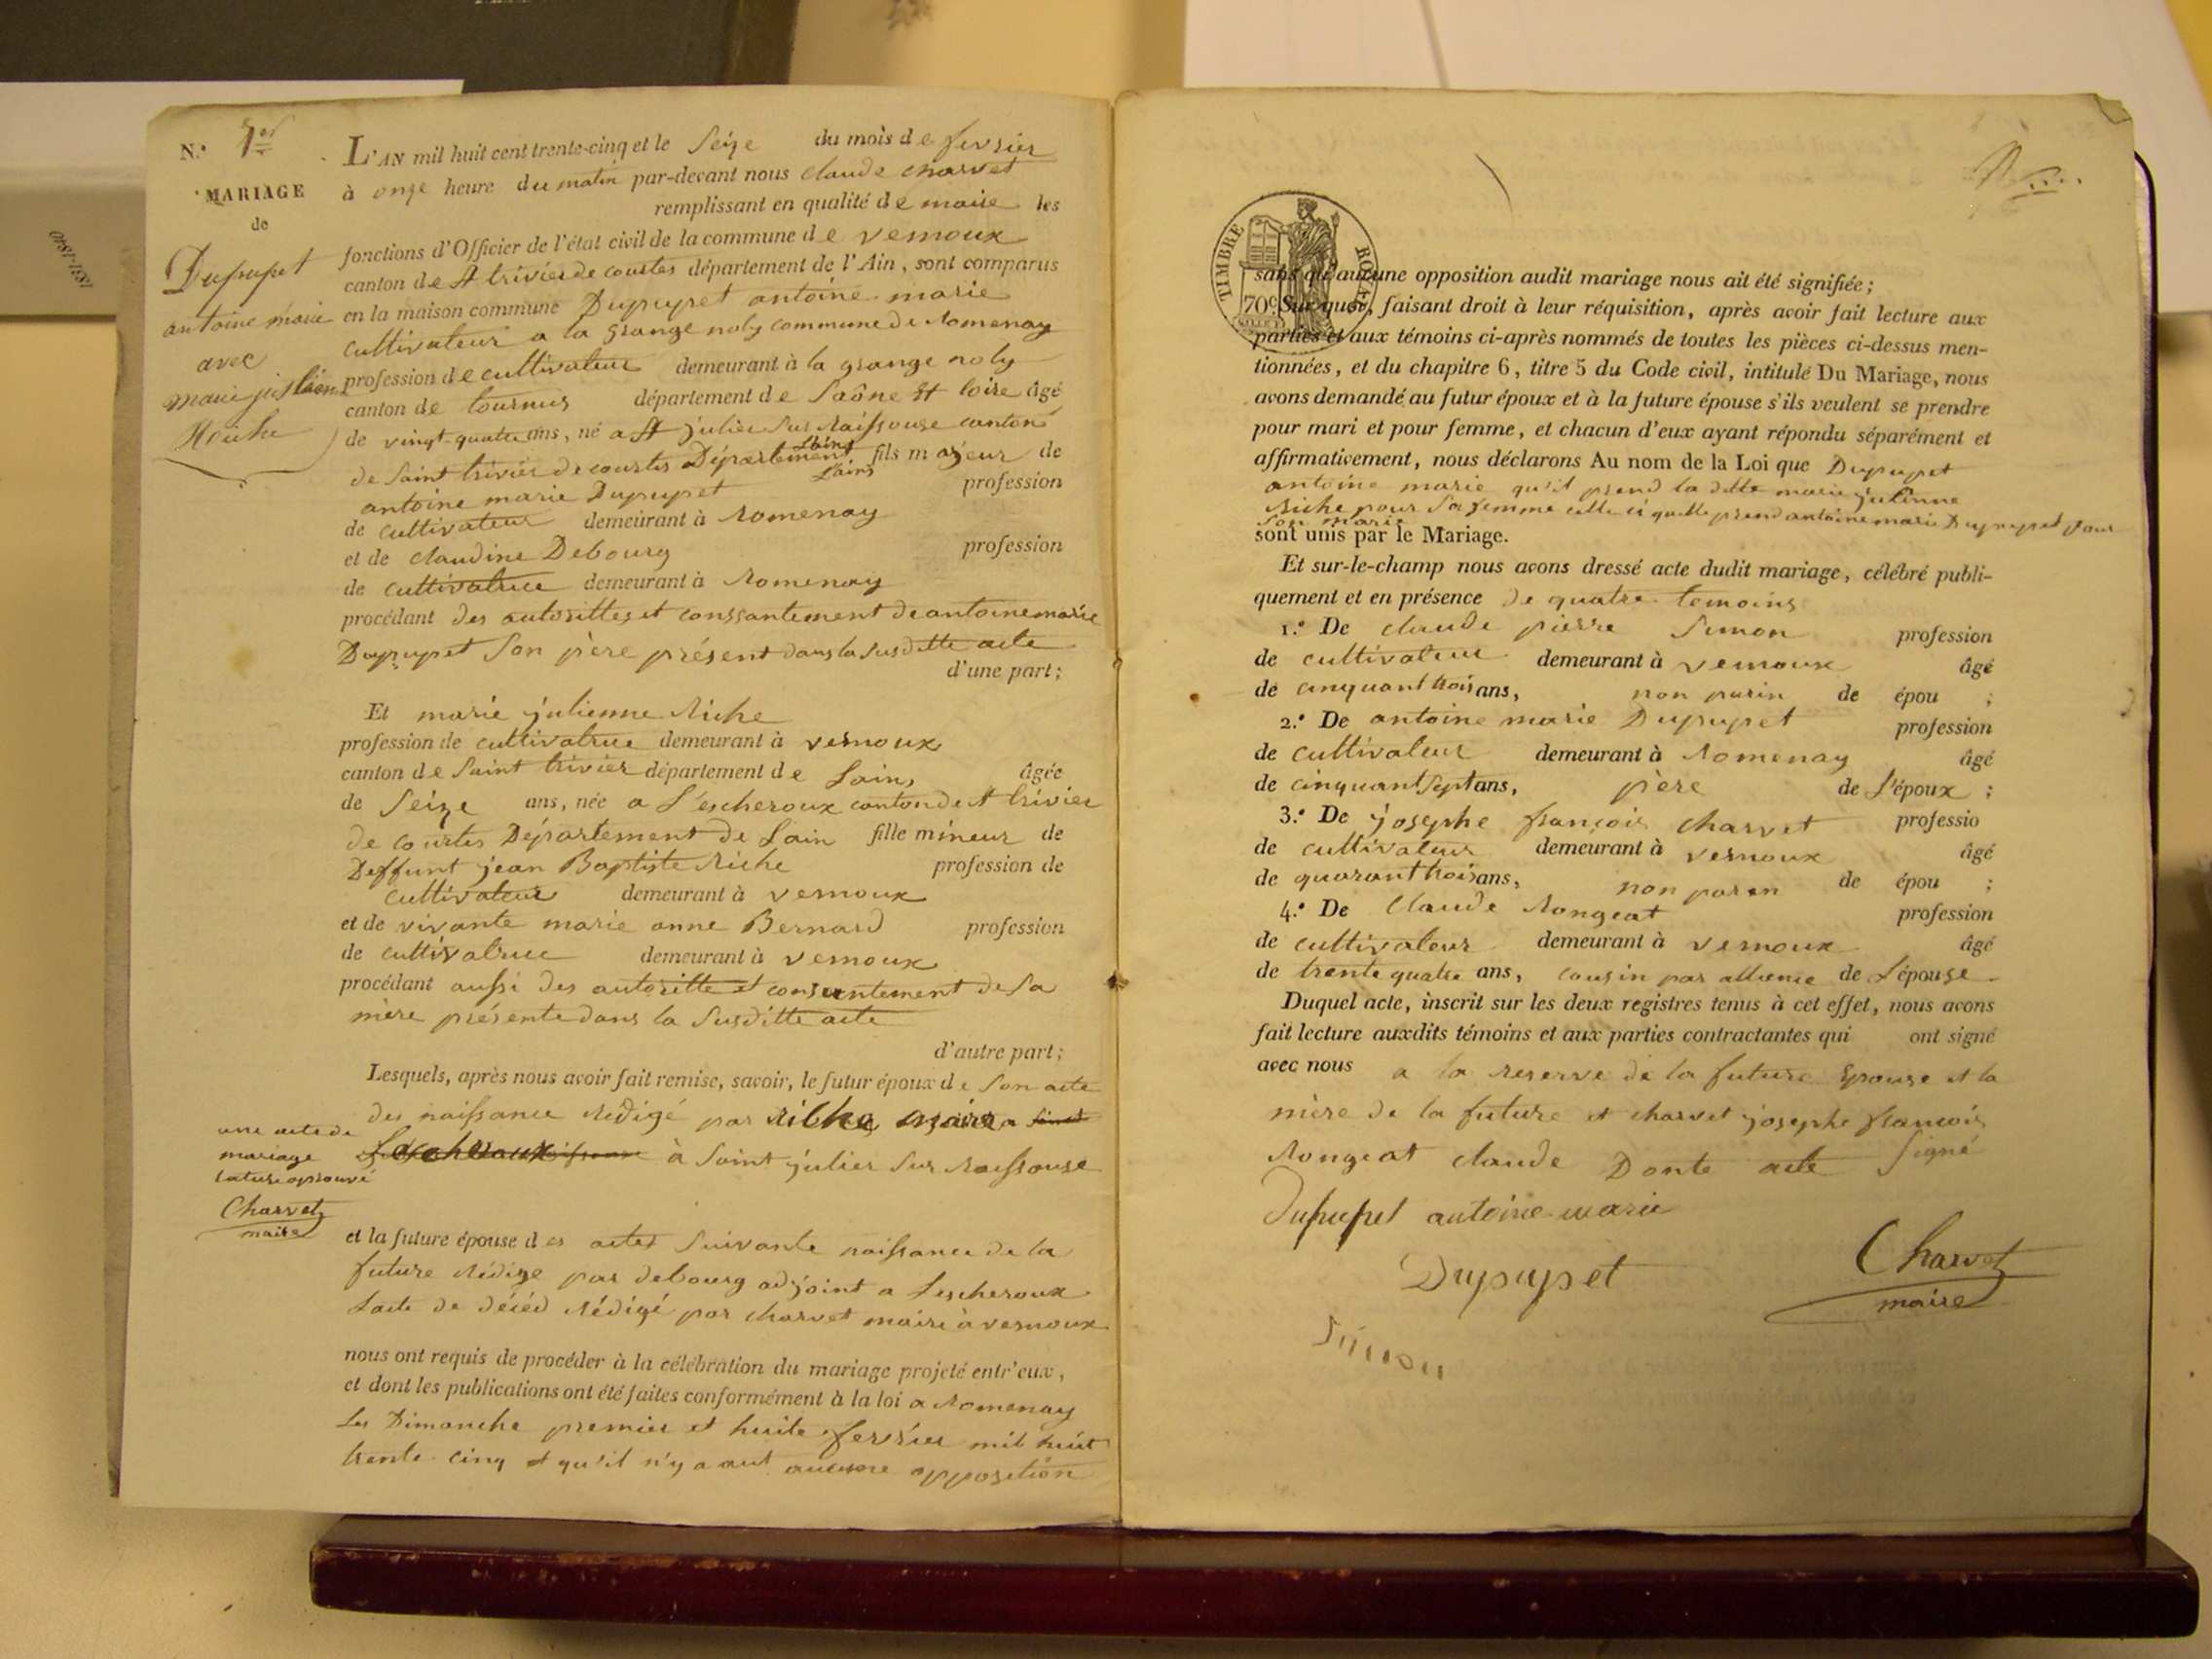 N.º 1er
MARIAGE
de
Dupupet
antoine marie
avec
marie julienne
Riche
L'AN mil huit cent trente-cinq et le Seize du mois de fevrier
à onze heure du matin par-devant nous claude charvet
remplissant en qualité de maire les
fonctions d'Officier de l'état civil de la commune de vernoux
canton de St trivier de courtes département de l'Ain, sont comparus
en la maison commune Dupupet antoine marie
cultivateur a la grange noly commune de Romenay
profession de cultivateur demeurant à la grange noly
canton de tournus département de Saône et loire âgé
de vingt quatre ans, né a St julien Sur Raissouse canton
de Saint trivier de courtes Département Lains Lains fils majeur de
antoine marie Dupupet profession
de cultivateur demeurant à Romenay
et de claudine Debourg profession
de cultivatrice demeurant à Romenay
procédant des autorittes et conssantement de antoine marie
Dupupet Son père présent dans la susditte acte
d'une part;
Et marie julienne Riche
profession de cultivatrice demeurant à vernoux
canton de Saint trivier département de Lains âgée
de Seize ans, née a L'escheroux canton de St trivier
de courtes Département de Lain fille mineur de
Deffunt jean Baptiste Riche profession de
cultivateur demeurant à vernoux
et de vivante marie anne Bernard profession
de cultivatrice demeurant à vernoux
procédant aussi des autoritte et consentement de Sa
mère présente dans la Susditte acte
d'autre part;
Lesquels, après nous avoir fait remise, savoir, le futur époux de Son acte
de naissance Rédigé par Riche maire a
à Saint julien Sur Raissouse
une acte de
mariage
rature aprouvé
Charvet
maire
et la future épouse des actes Suivante naissance de la
future Rédige par debourg adjoint a Lescheroux
Lacte de décéd Rédigé par charvet maire à vernoux
nous ont requis de procéder à la célébration du mariage projeté entr'eux,
et dont les publications ont été faites conformément à la loi a Romenay
Les Dimanche premier et huite fevrier mil huit
trente cinq et qu'il n'y a aut aucune opposition
TIMBRE ROYAL
70c
sans qu'aucune opposition audit mariage nous ait été signifiée;
Sur quoi, faisant droit à leur réquisition, après avoir fait lecture aux
parties et aux témoins ci-après nommés de toutes les pièces ci-dessus men-
tionnées, et du chapitre 6, titre 5 du Code civil, intitulé Du Mariage, nous
avons demandé au futur époux et à la future épouse s'ils veulent se prendre
pour mari et pour femme, et chacun d'eux ayant répondu séparément et
affirmativement, nous déclarons Au nom de la Loi que Dupupet
antoine marie qu'il prend la ditte marie julienne
Riche pour Sa femme celle ci quelle prend antoine marie Dupupet pour
Son marie
sont unis par le Mariage.
Et sur-le-champ nous avons dressé acte dudit mariage, célébré publi-
quement et en présence de quatre temoins
1.º De claude pierre Simon profession
de cultivateur demeurant à vernoux âgé
de cinquant trois ans, non parin de épou ;
2.º De antoine marie Dupupet profession
de cultivateur demeurant à Romenay âgé
de cinquant Sept ans, père de L'époux ;
3.º De josephe françois charvet professio
de cultivateur demeurant à vernoux âgé
de quarant trois ans, non paren de épou ;
4.º De Claude Rongeat profession
de cultivateur demeurant à vernoux âgé
de trente quatre ans, cousin par alliance de L'épouse
Duquel acte, inscrit sur les deux registres tenus à cet effet, nous avons
fait lecture auxdits témoins et aux parties contractantes qui ont signé
avec nous a la reserve de la future Epouse et la
mère de la future et charvet josephe francois
Rongeat claude Donte acte Signé
Dupupet antoine marie
Charvet
maire
Dupupet
Simon